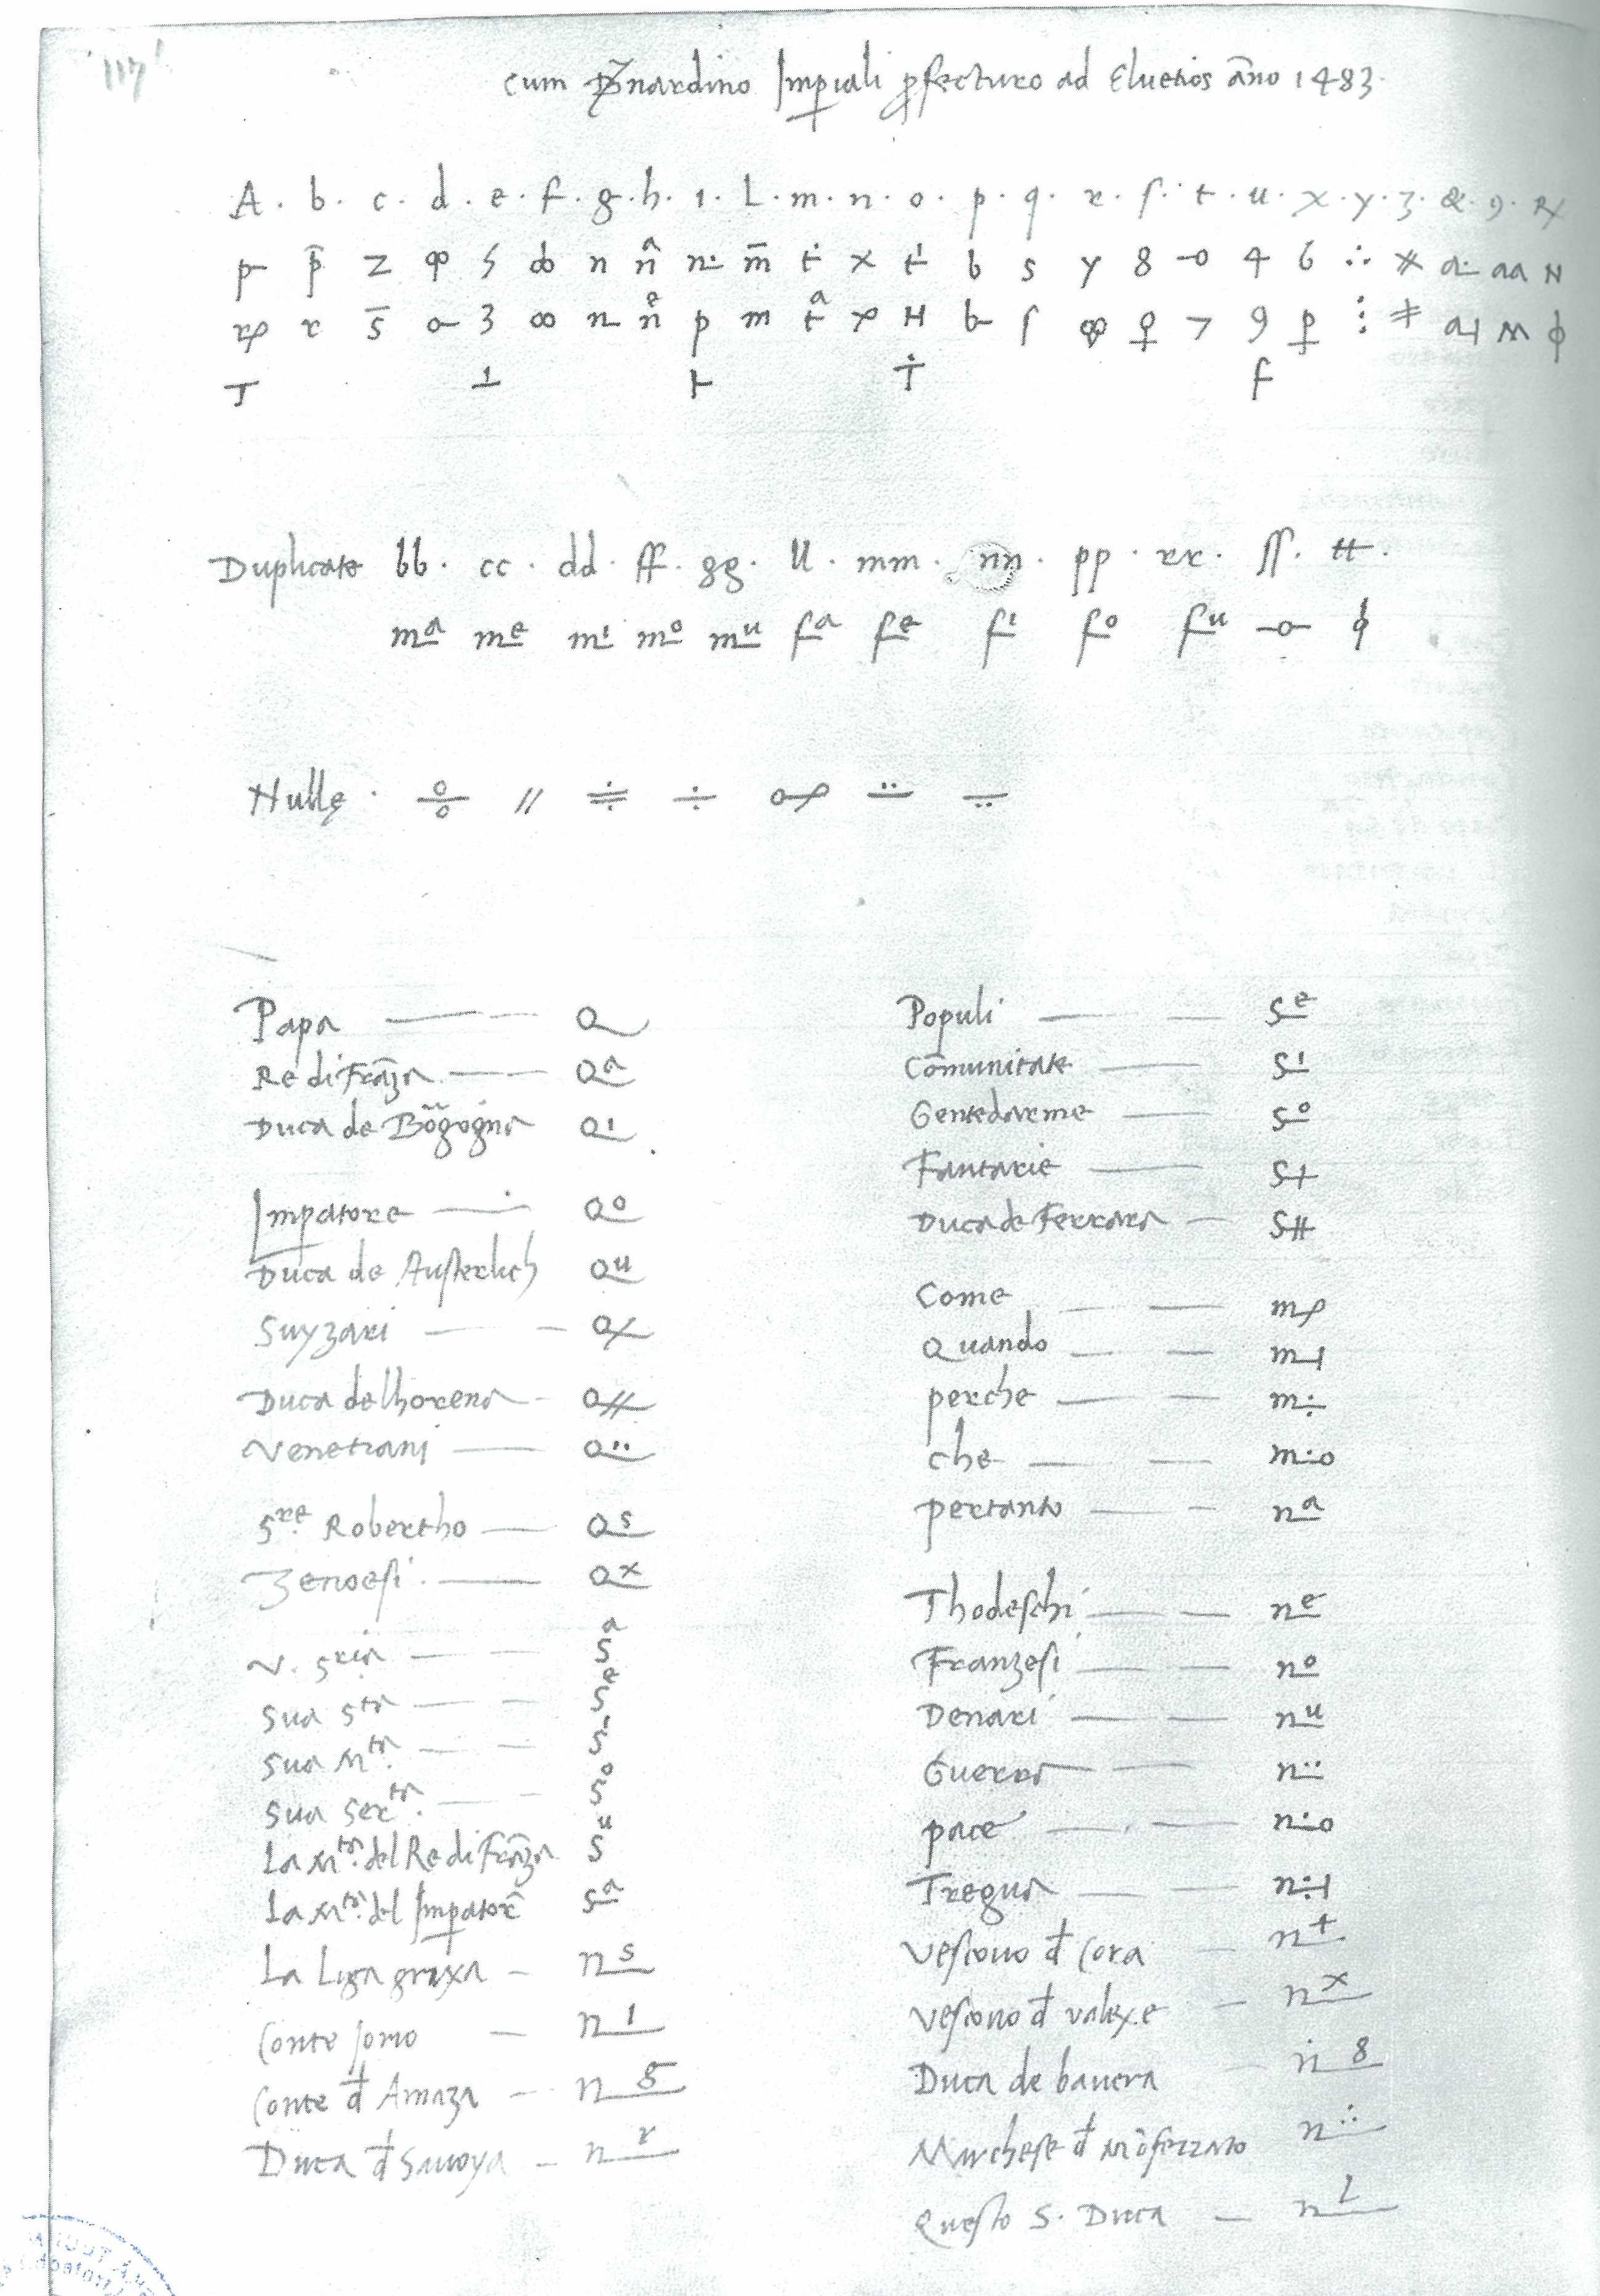 117
cum Bernardino Imp̱iali ꝓfecturo ad Eluetios ãno 1483.
A · b · c · d · e · f · g · h · ı · L · m · n · o · p · q · r · ſ · t · u · x · y · ʒ · & · 9 · ꝶ
p p̄ z φ ϟ n n̂ n· m̄ ṫ x b s y 8 -o 4 6 ∴ aa N
r s̄ o- 3 ∞ n- p m x H b- ſ ♀ 7 9 p ⋮ ≠ M ϕ
T ⊥ Ṫ f
Duplicate bb · cc · dd · ff · gg · ll · mm · nn · pp · rr · ſſ · tt ·
mᵃ mᵉ mⁱ mᵒ mᵘ fᵃ fᵉ fⁱ fᵒ fᵘ -o- ϕ
Nullę · //  ÷
Papa — o
Re di Frãza — oᵃ
Duca de Bõgogna — oⁱ
Imp̱atore — oᵒ
Duca de Auſterlich oᵘ
Suyzari — ox
Duca delhorena — o//
Venetiani — o··
Sʳᵉ Robertho — oˢ
Zenoeſi — oˣ
V. Sʳⁱᵃ — sᵃ
Sua Sᵗᵃ — sᵉ
Sua Mᵗᵃ — sⁱ
Sua Serᵗᵃ — sᵒ
La Mᵗᵃ del Re di Frãza sᵘ
La Mᵗᵃ del Imp̱atorẽ sᵃ
La Liga grixa — nˢ
Conte Jorio — n¹
Conte đ Amaza — nᵍ
Duca đ Sauoya — nʳ
Populi — sᵉ
Cõmunitate — sⁱ
Gentedarme — sᵒ
Fantarie — s+
Duca de Ferrara — s#
Come — mp
Quando — m-ı
perche — m÷
che — m·o
pertanto — nᵃ
Thodeſchi — nᵉ
Franzeſi — nᵒ
Denari — nᵘ
Guerra — n··
pace — n·o
Tregua — n÷ı
Veſcouo đ Cora — n⁺
Veſcouo đ valexe — nˣ
Duca de bauera — n⁸
Marcheſe đ Mõferrato n∴
Queſto S. Duca — nᴸ